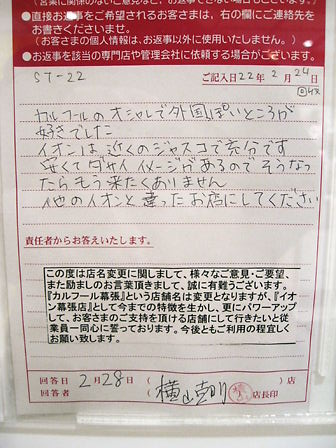 営業に関係のないご意見など、お返事できない場合もございます。
●直接お返事をご希望されるお客さまは、右の欄にご連絡先を
お書きくださいませ。
(お客さまの個人情報は、お返事以外に使用いたしません。)
●お返事を該当の専門店や管理会社に依頼する場合がございます。
ST-22
ご記入日22年2月24日
カルフールのオシャレで外国っぽいところが
好きでした
イオンは近くのジャスコで充分です
安くてダサイイメージがあるのでそうなっ
たらもう来たくありません
他のイオンと違ったお店にしてください
責任者からお答えいたします。
この度は店名変更に関しまして、様々なご意見・ご要望、
また励ましのお言葉頂きまして、誠に有難うございます。
『カルフール幕張』という店舗名は変更となりますが、『イオ
ン幕張店』として今までの特徴を生かし、更にパワーアップ
して、お客さまのご支持を頂ける店舗にして行きたいと従
業員一同心に誓っております。今後ともご利用の程宜しく
お願い致します。
回答日 2月28日 ( )店
回答者 ( 横山 )店長印